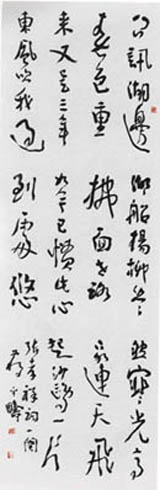 问訊湖邊
春色重
来又是三年
東風吹我過
湖船楊柳丝丝
拂面世路
如今已惯此心
到處悠
然寒光亭
下水連天飛
起沙鸥一片
張孝祥词一阕